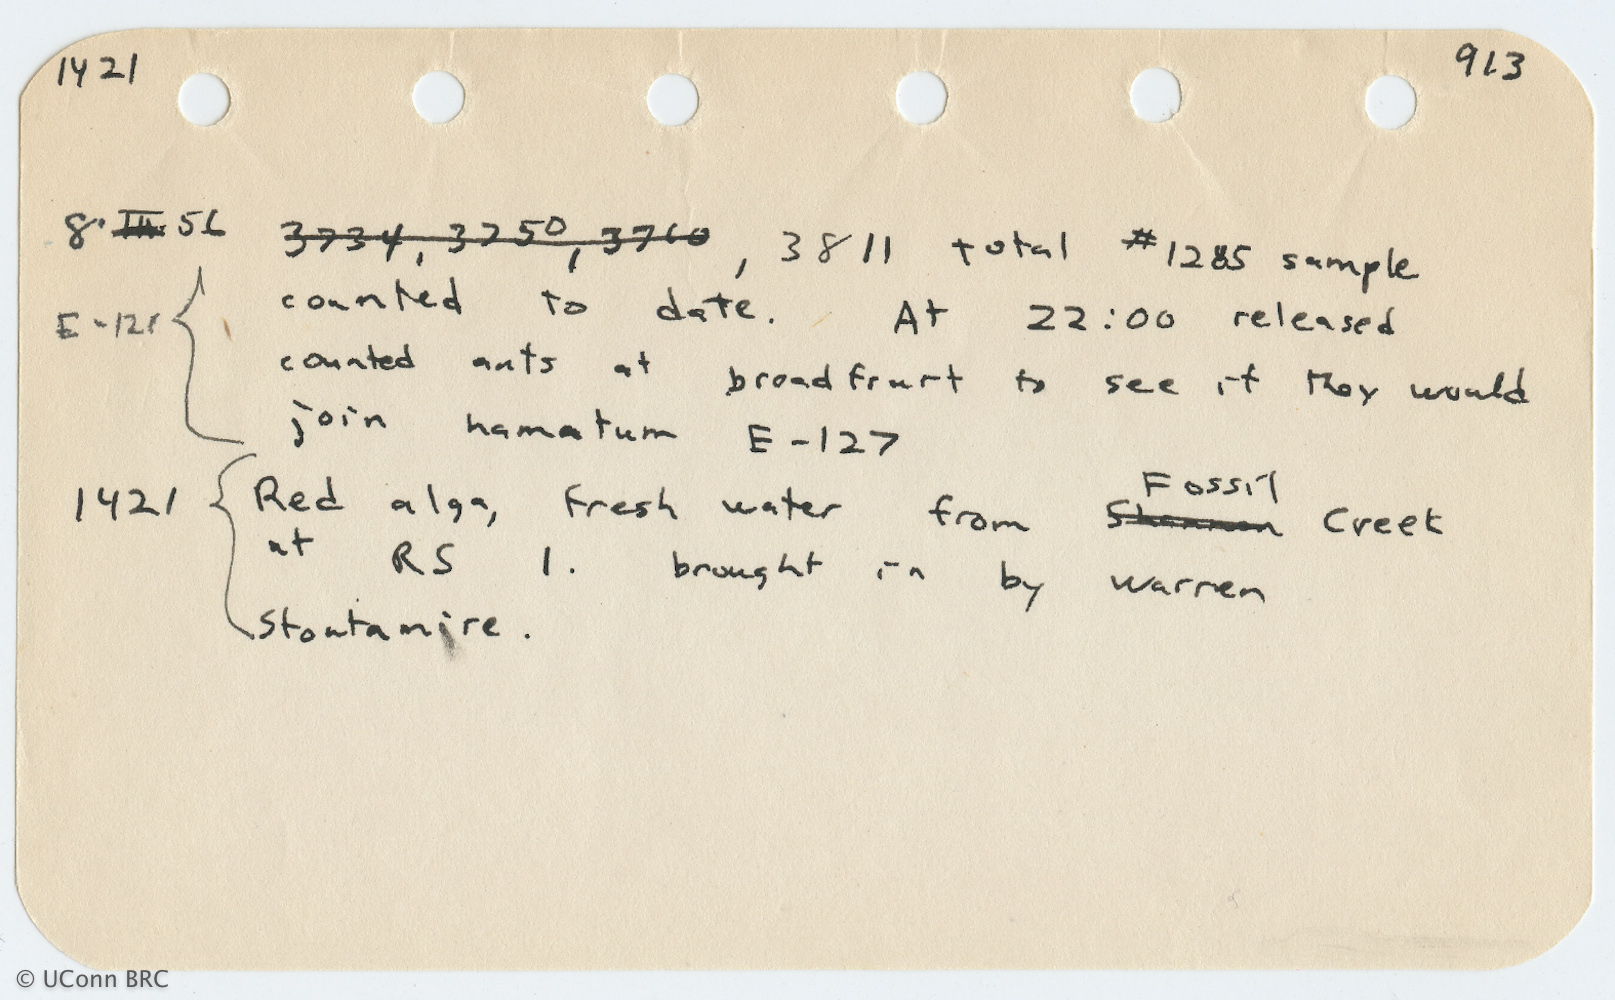 1421 913
8. III 56 3734, 3750, 3760, 3811 total #1285 sample
counted to date. At 22:00 released
E-121 counted ants at broadfruit to see if they would
join hamatum E-127
1421 Red alga, fresh water from Shannon Fossil Creek
at RS 1. brought in by Warren
Stoutamire.
© UConn BRC